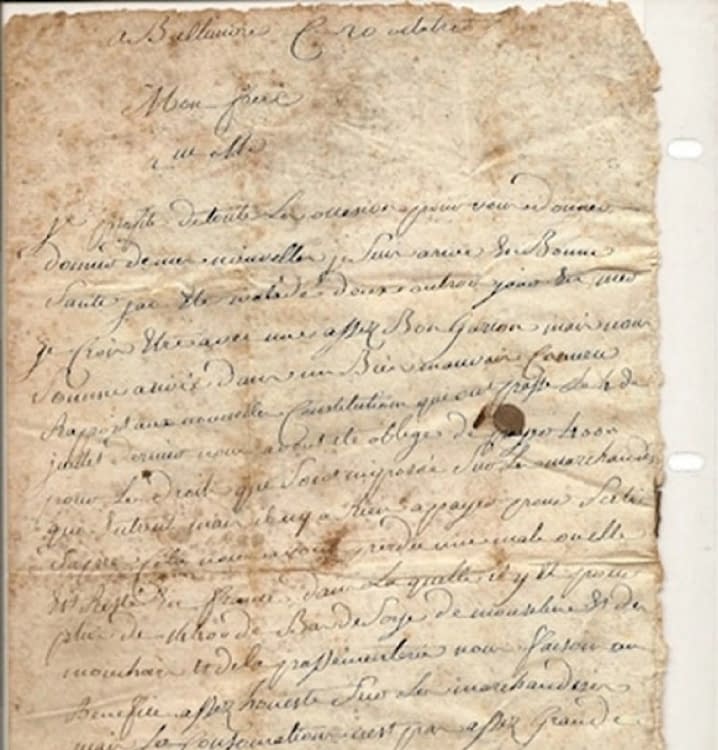 a Baltimore Ce 20 octobre
Mon frere
Je profite de toute les occasion pour vous donner
donner de mes nouvelles je suis arivé En Bonne
Santé jai Eté malade deux ou trois jour En mer
je Crois Etre avec un assez Bon Garçon mais nous
Somme arivé dans un Bien mauvais
Raport aux nouvelle Constitution que ont passé Le 4 de
juillet dernier nous avons Eté oblige de payer 400
pour Le droit que Sont imposée Sur Les marchandise
que Entrent mais il ny a Rien a payer pour
nous avons perdu une male ou elle
Est Resté En france dans La quelle il y Et pour
plus de de Bas de Soye de mouseline Et des
mouchoir Et de la passementerie nous faison un
Benefice assez honeste Sur Les marchandise
mais La Consomation nest pas assez Grande